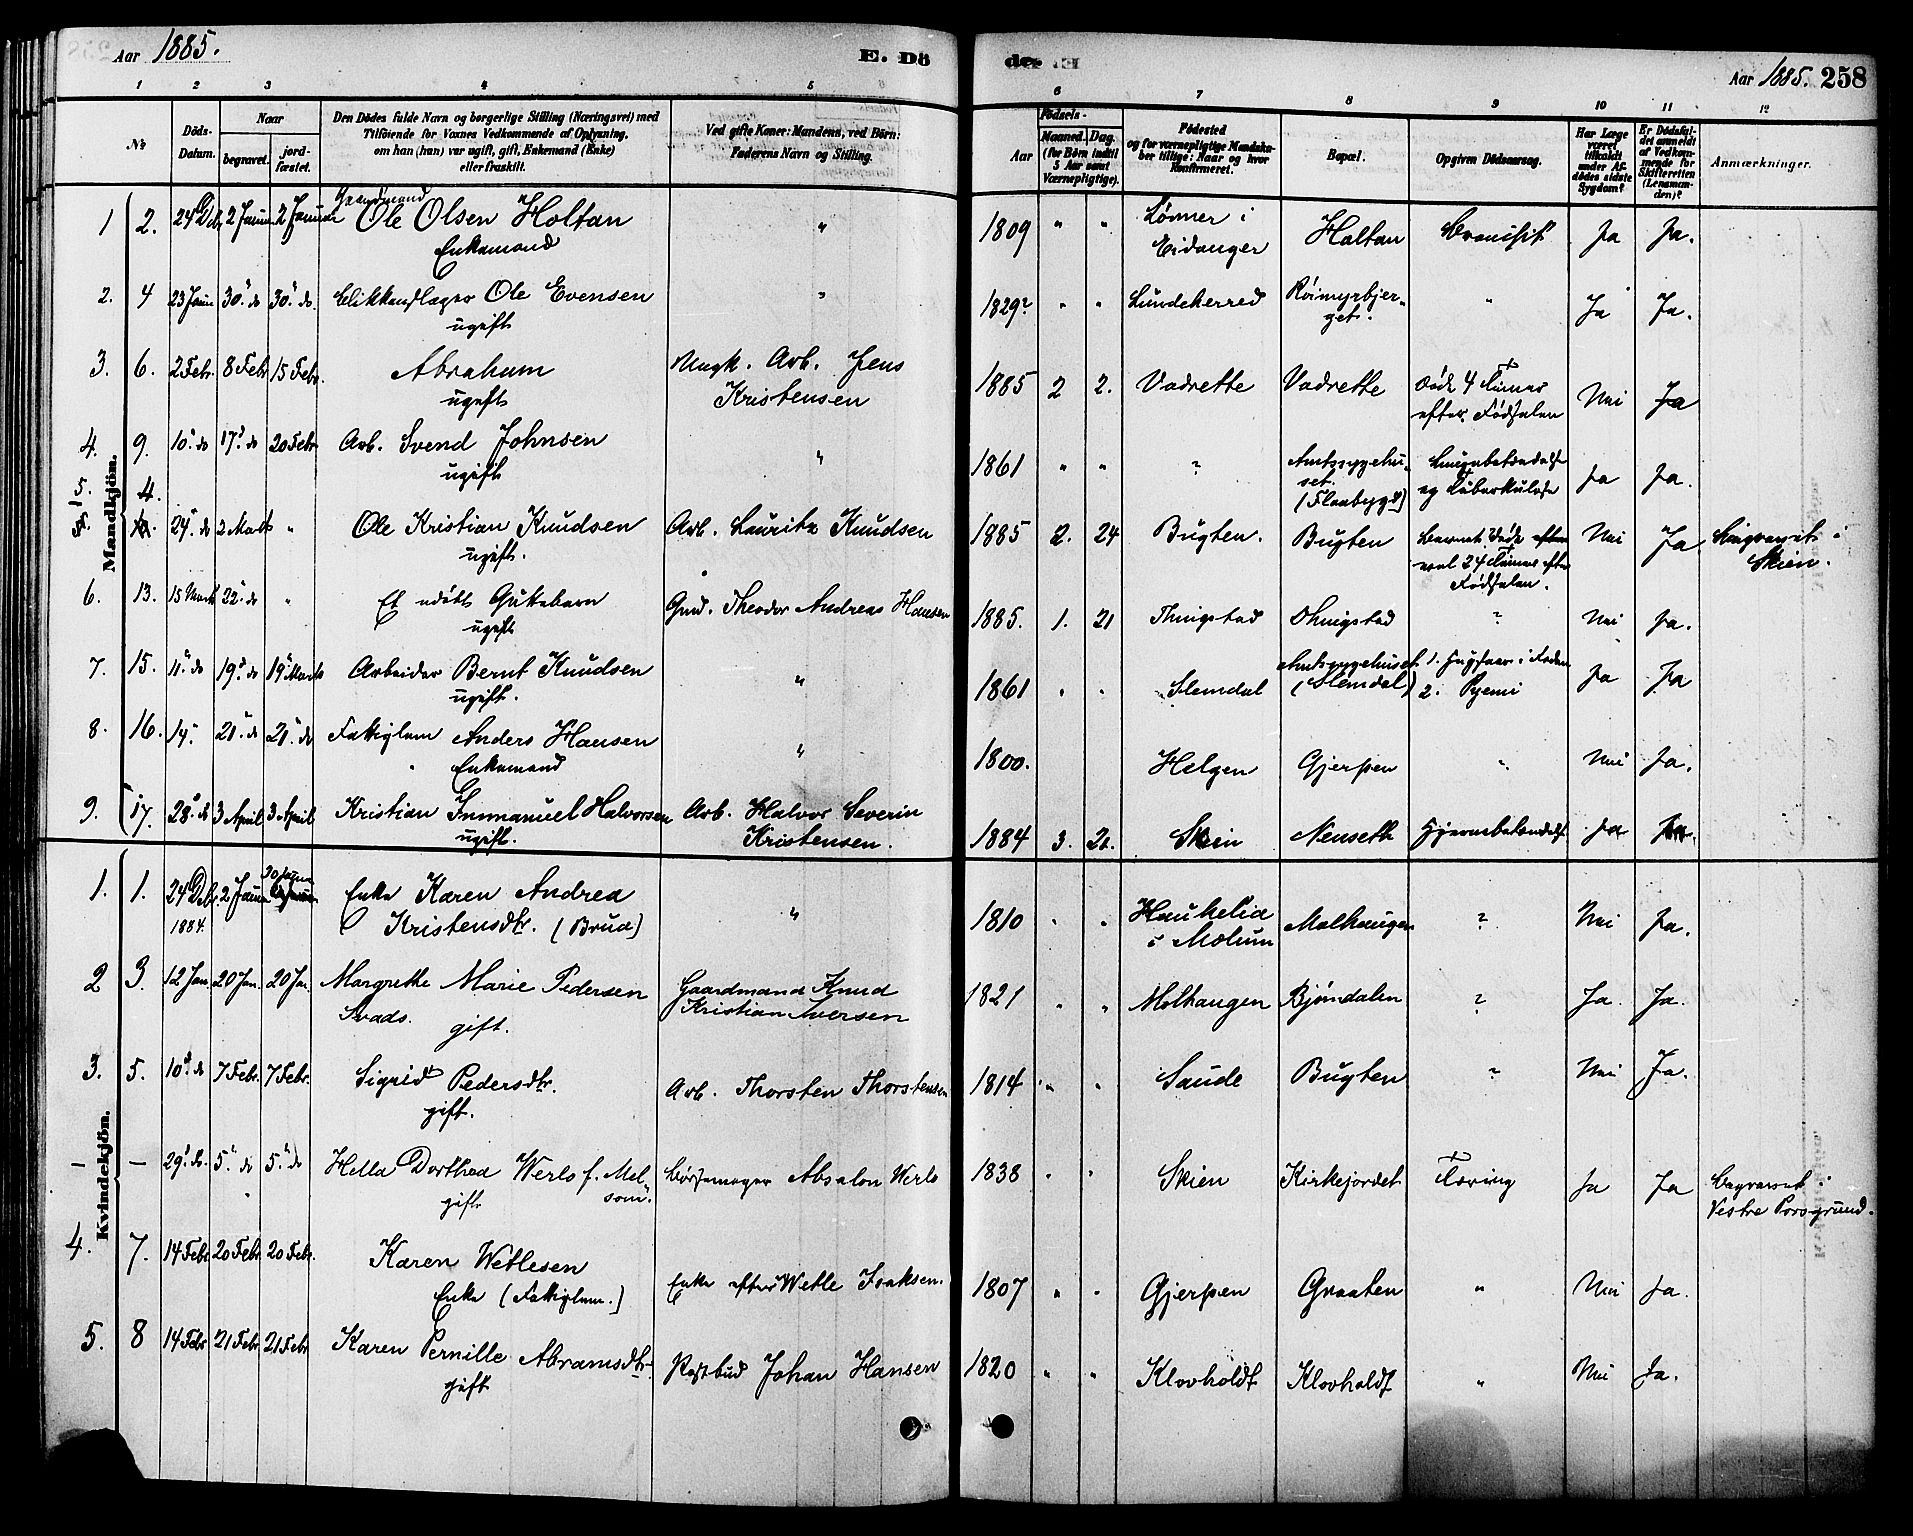 Aar 1885.
E. Dö
1 2 3 4 5
No
Döds-Datum.
Naar
begravet.
jord-fæstet.
Den Dödes fulde Navn og borgerlige Stilling (Næringsvei) med
Tilföiende for Voxnes Vedkommende af Oplysning,
om han (hun) var ugift, gift, Enkemand (Enke)
eller fraskilt.
Ved gifte Koner: Mandens, ved Börn:
Faderens Navn og Stilling.
Mandkjön.
1 2. 24 Dcb. 2 Januar 2 Januar Gaardmand
Ole Olsen Holtan "
Enkemand
2. 4 23 Janu 30. do 30. do. Blikkenslager Ole Evensen "
ugift
3. 6. 2 Febr. 8 Febr 15 Febr. Abraham Arb. Jens
ugift Kristensen
4. 9. 10. do 17. do 20 Febr Arb. Svend Johnsen "
ugift
5. 4. 24. do 2 Marts " Ole Kristian Knudsen Arb. Lauritz Knudsen
ugift.
6. 13. 15 Marts 22. do " Et udöbt Guttebarn Gmd. Theodor Andreas Hansen
ugift
7. 15. 11. do 19. do 19 Marts Arbeider Bernt Knudsen "
ugift.
8. 16. 14. 21. do 21. do Fattiglem Anders Hansen "
Enkemand
9. 17. 28. do 3 April 3 April Kristian Immanuel Halvorsen Arb. Halvor Severin
ugift. Kristensen.
Kvindekjön.
1. 1. 24 Dcb. 2 Janu 20 Janu Enke Karen Andrea "
1884. Kristensdtr. (Brua)
2 3. 12 Jan. 20 Jan. 20 Jan. Margrethe Marie Pedersen Gaardmand Knud
gift. Kristian Iversen
3. 5. 10. do 7 Febr. 7 Febr. Sigrid Pedersdtr. Arb. Thorsten Thorstensen
gift.
– – 29. do. 5. do 5. do Hella Dorthea Werlo f. Mel-
gift som. Börsemager Absalon Werlo
4. 7. 14 Febr 20 Febr. 20 Febr. Karen Wetlesen
Enke (Fattiglem.) Enke efter Wetle Isaksen.
5. 8 14 Febr 21 Febr 21 Febr Karen Pernille Abramsdtr.
gift Postbud Johan Hansen
de. E.
Aar 1885. 258
6 7 8 9 10 11 12
Födsels-
Aar
Maaned. Dag.
(for Börn indtil
5 Aar samt
Værnepligtige).
Födested
og for værnepligtige Mandska-
ber tillige: Naar og hvor
Konfirmeret.
Bopæl.
Opgiven Dödsaarsag.
Har Læge
været
tilkaldt
under Af-
dödes sidste
Sygdom?
Er Dödsfal-
det anmeldt
af Vedkom-
mende for
Skifteretten
(Lensman-
den)?
Anmærkninger.
1809 " " Lönner i
Eidanger Holtan Bronchit Ja Ja.
1829? " " Lundeherred Röimyrbjer-
get. " Ja Ja.
1885 2 2. Vadrette Vadrette Död 4 Timer
efter Födselen Nei Ja
1861 " " ? Amtssygehu-
set.
(Flaabygd) Lungebetændelse
og Tuberkulose Ja Ja.
1885 2. 24 Bugten. Bugten Barnet döde
24 Timer efter
Födselen. Nei Ja i
Skien.
1885. 1. 21 Thingstad Thingstad ? Nei Ja.
1861 " " Slemdal Amtssygehuset
(Slemdal) 1.
2. Pyemi Ja Ja
1800. Helgen Gjerpen " Nei Ja.
1884 3. 21. Skien Nenseth Hjernebetændelse Ja Ja.
1810 " " Haukelia
i Mælum Mælhaugen ? Nei Ja.
1821 " " Mælhaugen Bjöndalen ? Ja. Ja.
1814 " " Saude Bugten ? Nei Ja.
1838 " " Skien Kirkejordet Tæring Ja Ja Begravet i
Vestre Porsgrund.
1807 " " Gjerpen Graaten " Nei Ja.
1820 " " Klovholdt Klovholdt " Nei Ja.